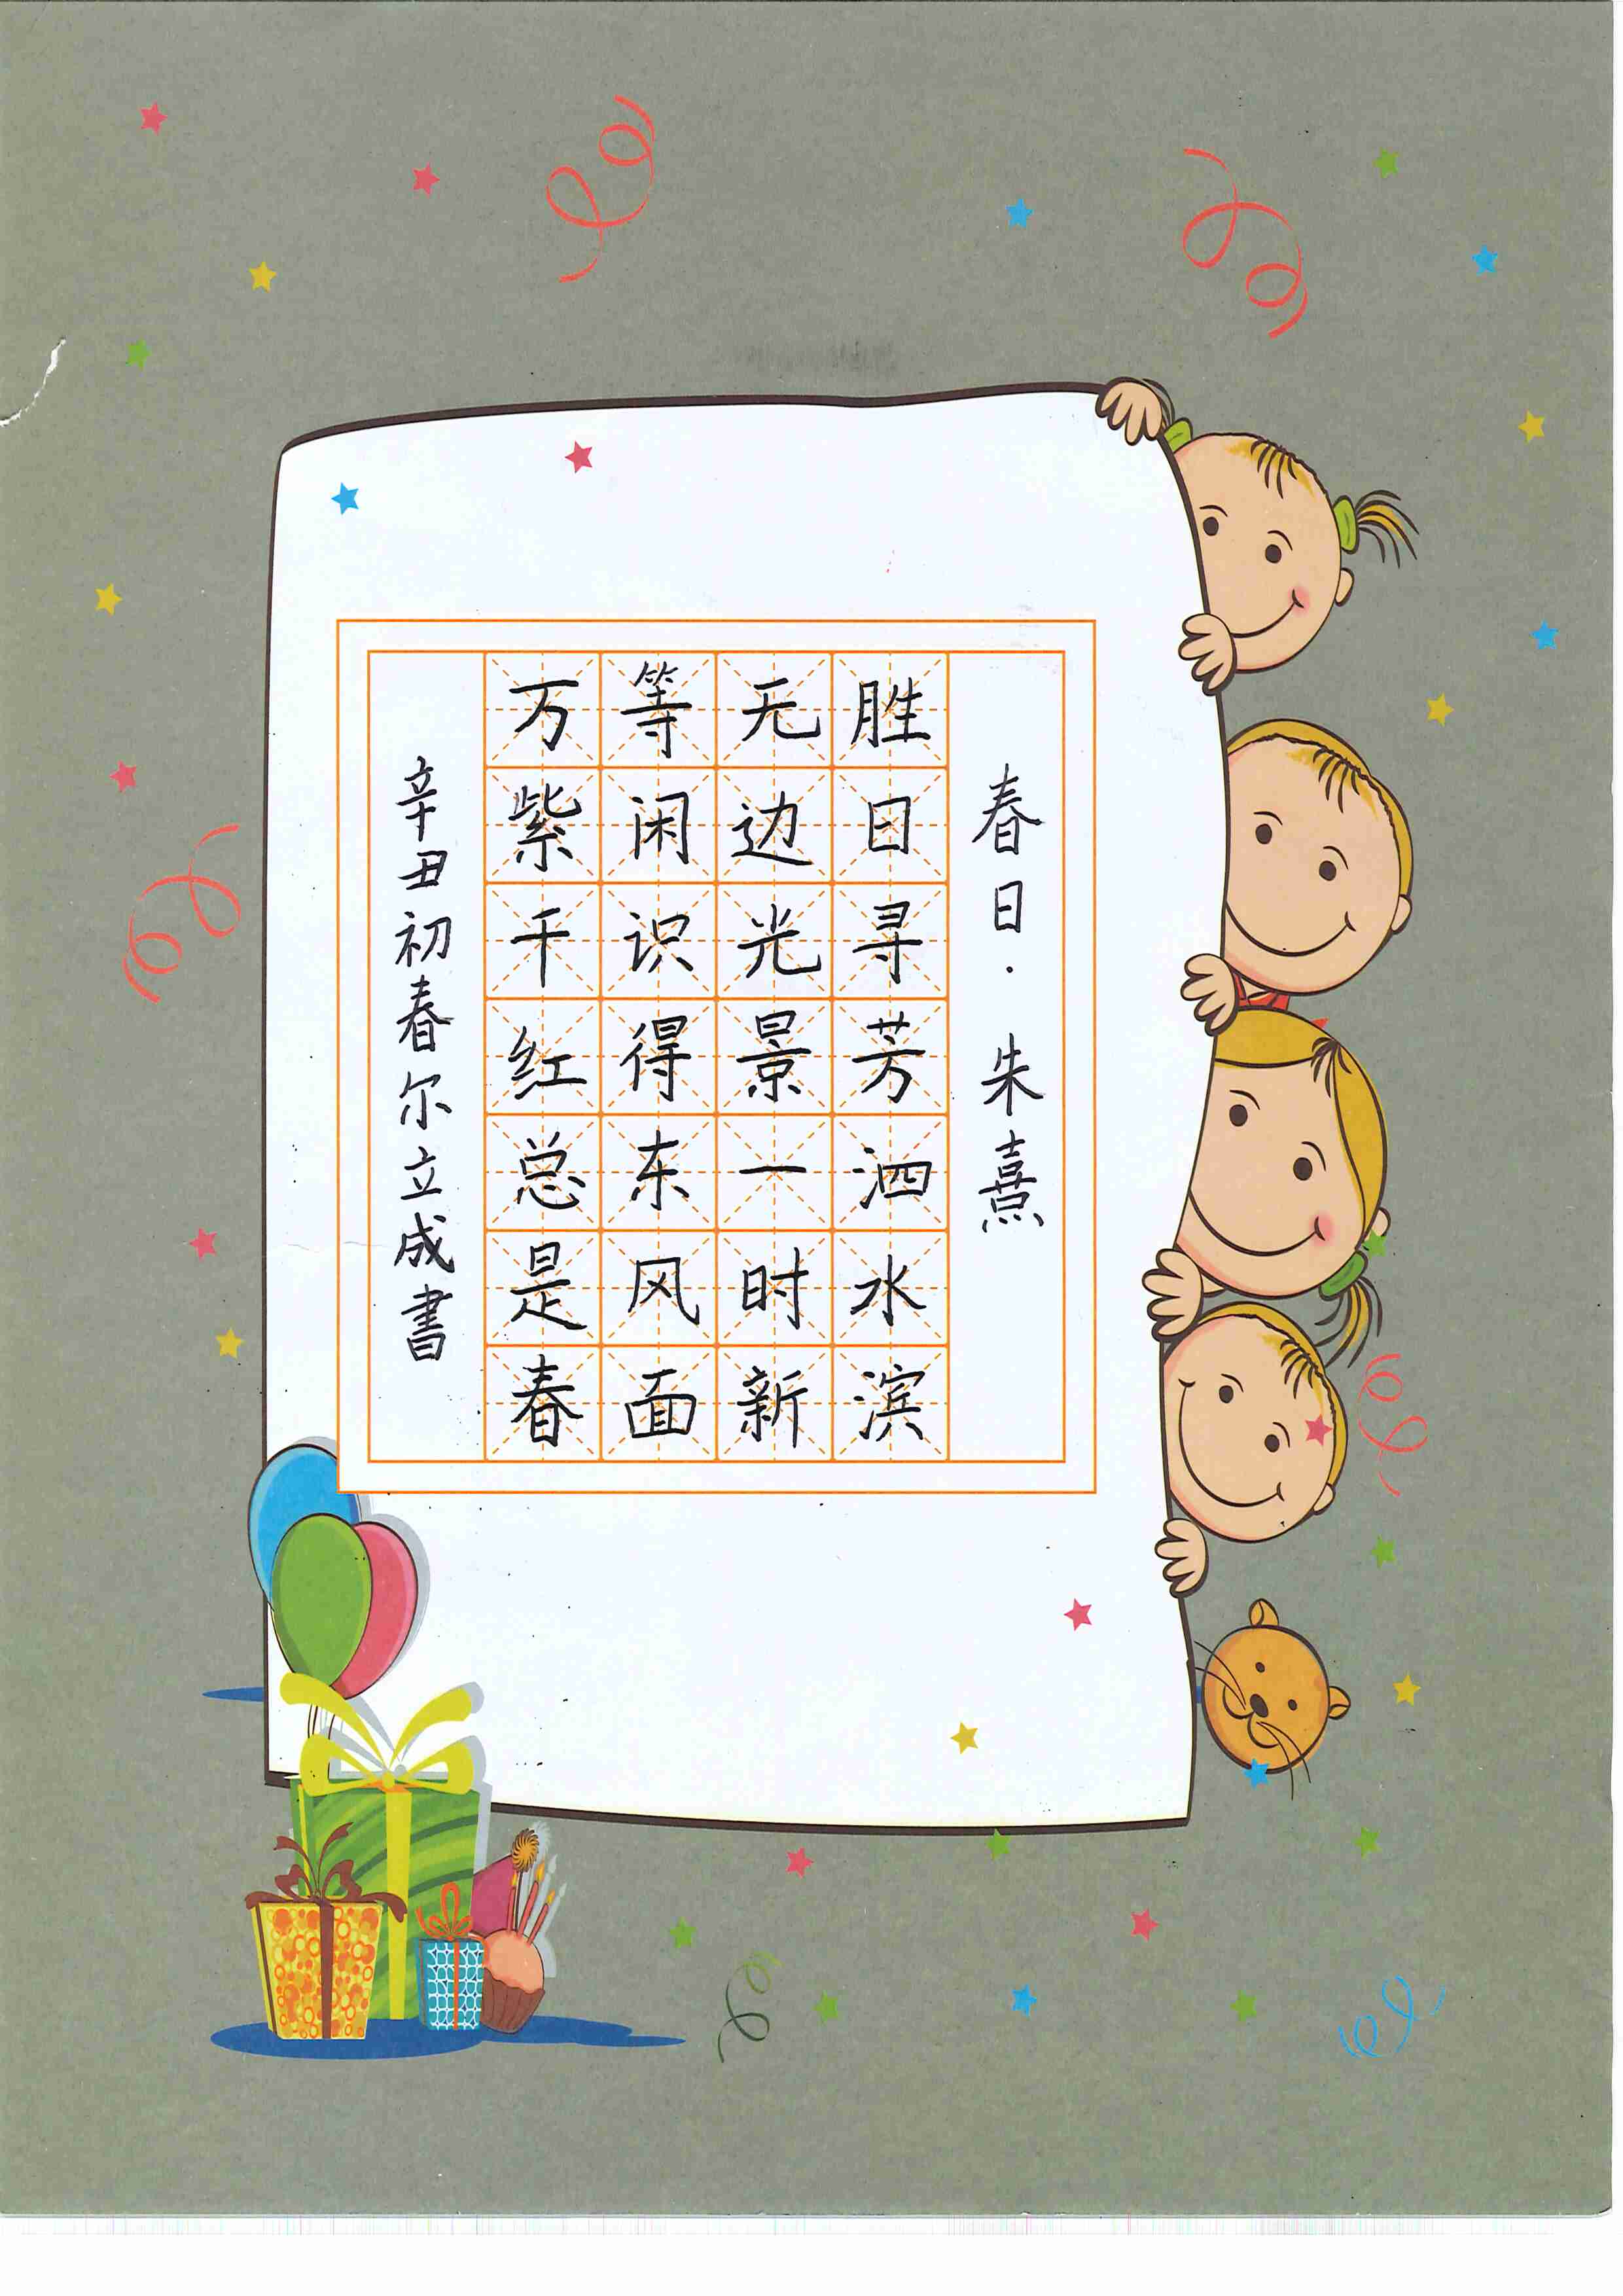 春日·朱熹
胜日寻芳泗水滨
无边光景一时新
等闲识得东风面
万紫千红总是春
辛丑初春尔立成書